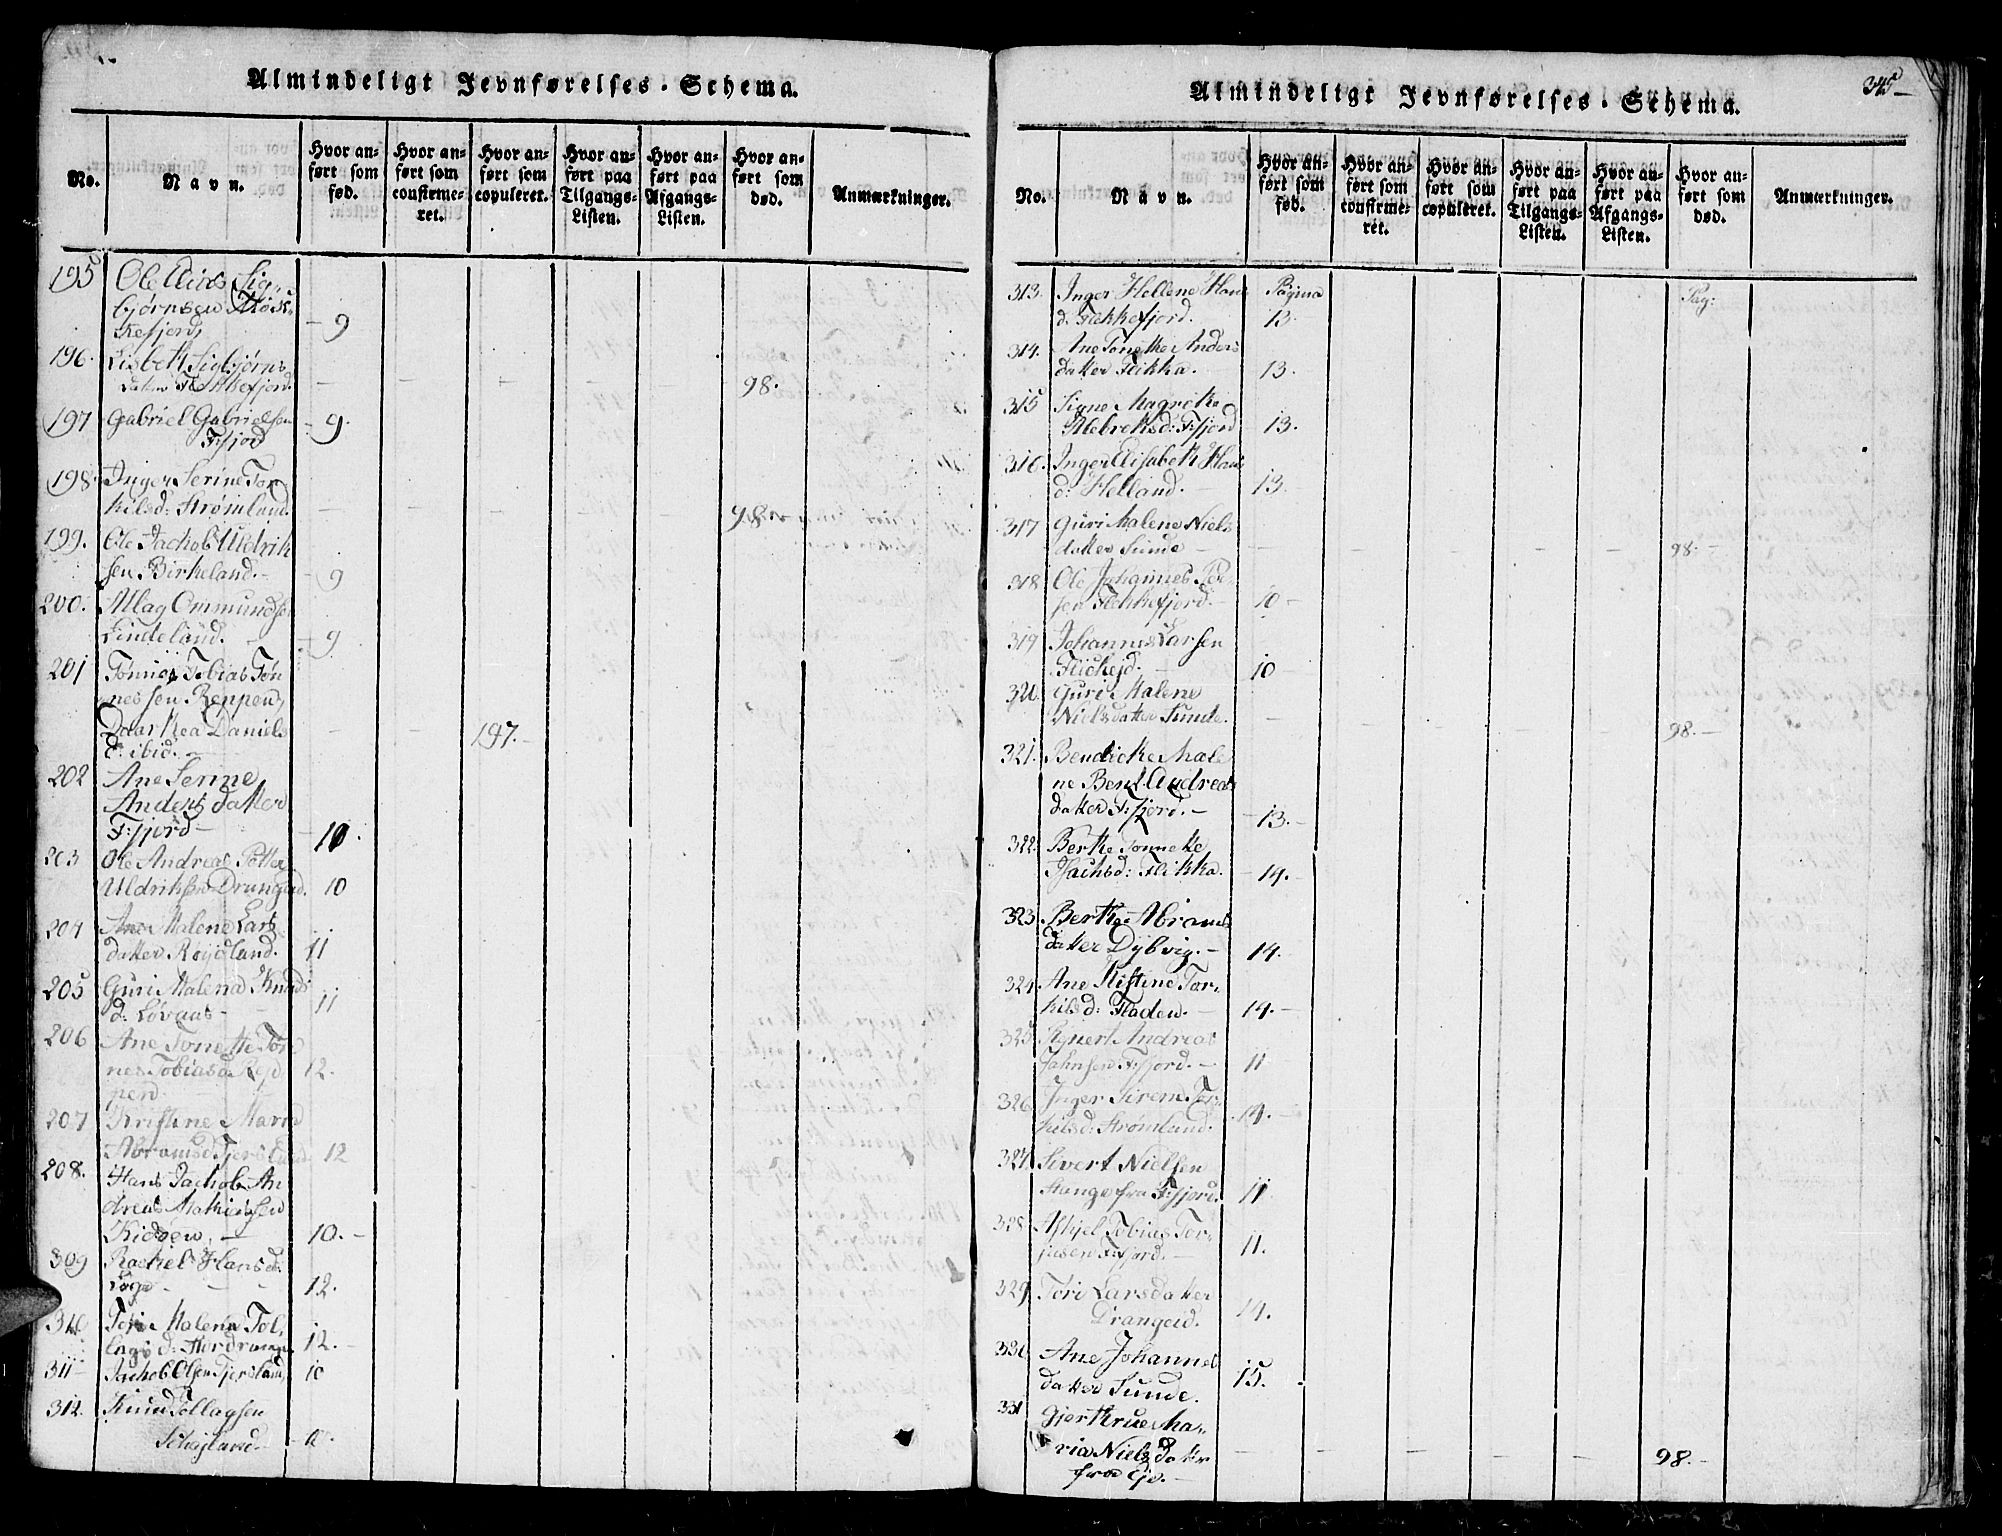 Almindeligt Jevnførelses-Schema.
No.
Navn.
Hvor anført som fød.
Hvor anført som confirmeret.
Hvor anført som copuleret.
Hvor anført paa Tilgangs-Listen.
Hvor anført paa Afgangs-Listen.
Hvor anført som død.
Anmærkninger.
195 Ole Elias Sig-
bjørnsen
kefjord, - 9
196. Lisbeth Sigbjørns
datter Flekkefjord. - - - 98.
197 Gabriel Gabrielsen
F:fjord - 9.
198. Inger Serine Tor
kilsd: Strømland - - - 98
199. Ole Jachob Uldrik
sen Birkeland. - 9
200. Allag Ommundsen
Lindeland. - 9
201 Tønnes Tobias Tøn
nessen Reppen,
Daarthea Daniels
d: ibid. - - - 197. -
202 Ane Serine
Anders datter
F:fjord - 10.
203 Ole Andreas Potter
Uldriksen Drangeid. 10
204 Ane Malene Lars
datter Røyseland. 11
205 Guri Malene Knuds
d: Lovaas - 11
206 Ane Tonette Tøn
nes Tobiasd: Rep
pen 12.
207 Kristine Maria
Abramsd: Fjersland 12
208. Hans Jachob An
dreas Mathiesen
Kidøen. - 10. -
309 Rachel Hansd:
Loga - - - 12.
310 Malena Tol
lags d: Hordragn 12. -
311 - Jachob Olsen Fjersland, 10
312. Knud Tollagsen
Schojland - - 10.
Almindeligt Jevnførelses-Schema.
345 -
No.
Navn.
Hvor anført som fød.
Hvor anført som confirmeret.
Hvor anført som copuleret.
Hvor anført paa Tilgangs-Listen.
Hvor anført paa Afgangs-Listen.
Hvor anført som død.
Anmærkninger.
313. Inger Hellene Hans Pagina Pag:
d: Flekkefjord. 13. -
314. Ane Tonette Anders
datter Flikka. - 13.
315 Signe Magrete
Albretsd: F:fjord 13.
316. Inger Elisabeth Hans
d: Helland. - 13.
317 Guri Malene Niels
datter Sunde - - - - - - 98. -
318 Ole Johannes
sen Flekkefjord. - 10 -
319 Johannes Larsen
- 10 -
320. Guri Malene
Nielsdatter Sunde. - - - - - 98. -
321. Bendicte Male
ne Bent Andreas
datter F:fjord. - - 13. -
322. Berthe Tonnete
Jachsd: Flikka. - 14. -
323. Berthe Abrams
datter Dybvig. - 14.
324. Ane Kistine Tor-
kilsd: Fladen. - 14. -
325. Andreas
Jahnsen F:fjord. - 11
326. Inger Sirene Tor-
kilsd: Strømland. 14. -
327. Sivert Nielsen
Stange fra F:fjord. 11
328. Tobias Tor-
jusen F:fjord. - 11.
329. Tori Larsdatter
Drangeid. 14.
330. Ane Johannes
datter Sunde. 15. .
331 Gjertrue Ma-
ria Niels datter - - - - - 98. -
fra -